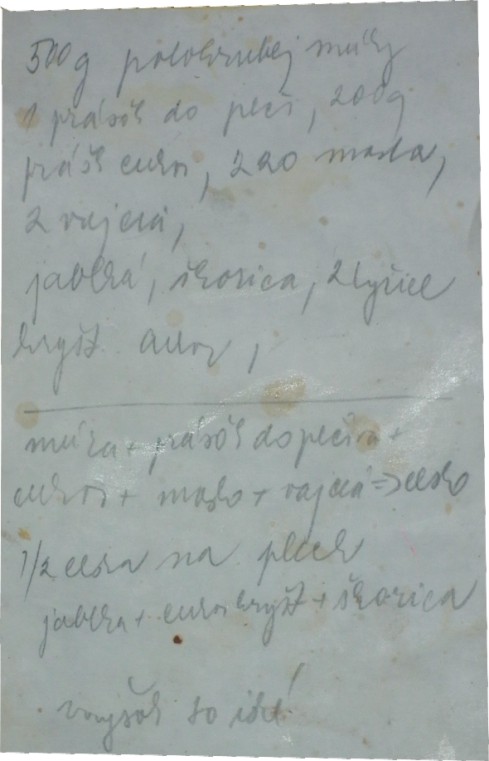 500g polohrubej múky
1 prášok do peči, 200g
prášk cukor, 220 masla,
2 vajcia,
jablká, škorica, 2 lyžice
kryšt. cukor,
múka + prášok do pečiva +
cukor + maslo + vajciá => cesto
1/2 cesta na plech
jablka + cukor kryšt + škorica
zvyšok to isté!